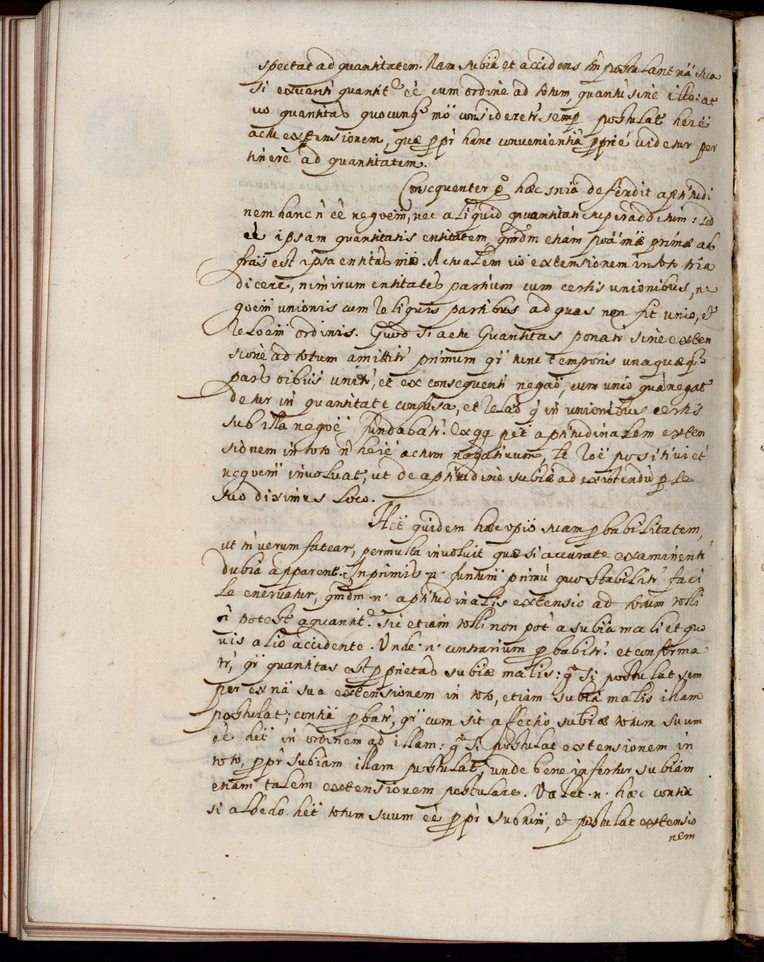 spectat ad quantitatem. Nam subia et accidens non postulant
si ex quanti quantit.s eē cum ordine ad totum, quanti sine illo: at
vo quantitas quocunq mō consideretr semp postulat herē
actu extensionem, quæ ppr hanc convenientiā pprie videtur per
tinere ad quantitatem.
Consequenter hæc sniā defendit aptitudi
nem hanc ñ eē negoem, nec aliquid quantitati superadditum: sed
eē ipsam quantitatis entitatem, quidem etiam poā mæ primæ ab
ipsa entitas mæ. Actualem vō extensionem in toto tria
dicere, nimirum entitates partium cum certis unionibus, ne
goem unionis cum reliquis partibus ad quas non fit unio, et
reloem ordinis. Quod si actu Quantitas ponatr sine exten
sione ad totum amittitr primum qr tunc temporis unaquæq
pars oibus unitr, et ex consequenti negao, cum unio quā negat
detur in quantitate confusa, et relao q in unionibus certis
sub illa negoē fundabatr. Ex qq pet aptitudinalem exten
sionem in toto ñ herē actum negativum, sed positivi et
negoem involvat, ut de aptitudine subiæ ad existendū
suo diximus loco.
Het quidem hæc opio suam pbabilitatem,
ut in verum fatear, permulta involvit quæ si accurate examinentr
dubia apparent. Inprimis n. funtum primū quo stabilitr faci
le enervatur, quidm n. aptitudinalis extensio ad totum tolli
ñ potest a quantit.e sic etiam tolli non pot a subia mali et quo
vis alio accidente. Unde n. contrarium pbabitr. et confirma
tr, qr quantitas est pprietas subiæ malis: q si postulat sem
per ex nā sua extensionem in toto, etiam subia malis illam
postulat; contiā pbatr, qr cum sit affectio subiæ totum suum
eē het in ordinem ad illam: q si postulat extensionem in
toto, ppr subiam illam postulat, unde bene infertur subiam
etiam talem extensionem postulare. Valet n. hæc contia
si albedo het totum suum eē ppr subtum, et postulat extensio
nem